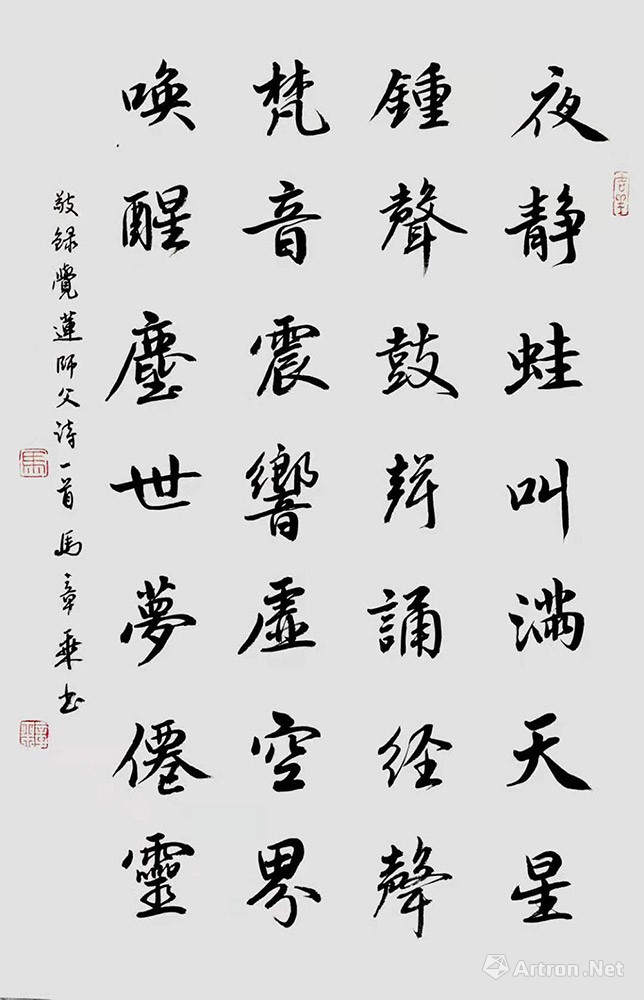 夜静蛙叫滿天星
鍾聲鼓聲誦经聲
梵音震響虛空界
唤醒塵世夢僊靈
敬録覺蓮師父诗一首 馬章乘书
馬
Artron.Net